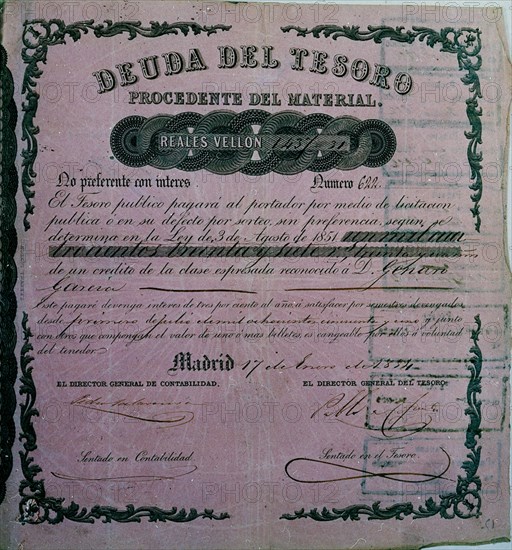 DEUDA DEL TESORO
PROCEDENTE DEL MATERIAL.
REALES VELLON
No preferente con interes Numero 622.
El Tesoro publico pagará al portador por medio de licitacion
publica ó en su defecto por sorteo, sin preferencia, segun se
determina en la Ley de 3 de Agosto de 1851
trecientos treinta y siete
de un credito de la clase espresada reconocido á D. Genaro
Garcia
Este pagaré devenga interes de tres por ciento al año, á satisfacer por semestres devengados
desde primero de Julio de mil ochocientos cincuenta y uno y junto
con otros que compongan el valor de uno ó mas billetes, es cangeable por ellos á voluntad
del tenedor.
Madrid 17 de Enero de 1854.
EL DIRECTOR GENERAL DE CONTABILIDAD, EL DIRECTOR GENERAL DEL TESORO
Sentado en Contabilidad Sentado en el Tesoro
PHOTO12